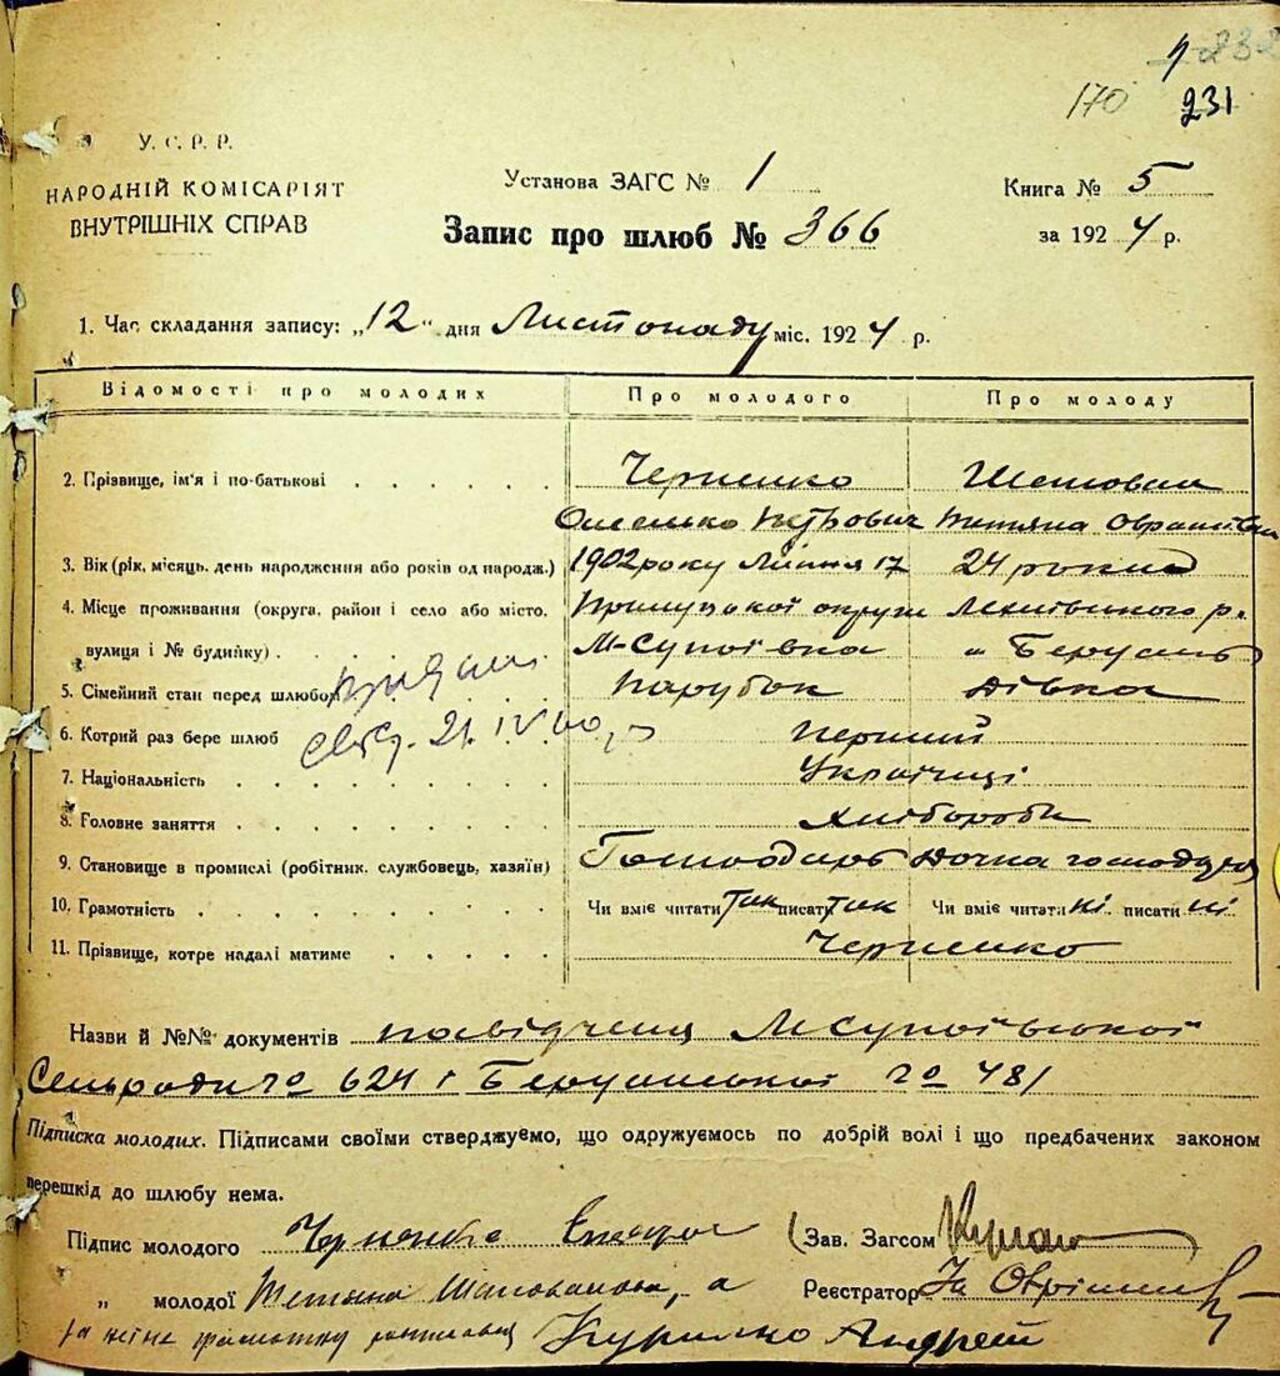 232
170 231
У. С. Р. Р.
НАРОДНІЙ КОМІСАРІЯТ
ВНУТРІШНІХ СПРАВ
Установа ЗАГС № 1
Книга № 5
Запис про шлюб № 366
за 1924 р.
1. Час складання запису: „12“ дня Листопаду міс. 1924 р.
Відомості про молодих Про молодого Про молоду
2. Прізвище, ім'я і по-батькові Черненко
Петрович Тетяна
3. Вік (рік, місяць, день народження або років од народж.) 1902 року Липня 17 24 роки
4. Місце проживання (округа, район і село або місто, Прилуцької округи р.
вулиця і № будинку) М-Супоївка „
5. Сімейний стан перед шлюбом Парубок Дівка
21. IV
6. Котрий раз бере шлюб Перший
7. Національність Українці
8. Головне заняття Хлібороби
9. Становище в промислі (робітник, службовець, хазяїн) Господарь Дочка господаря
10. Грамотність Чи вміє читати так писати так Чи вміє читати ні писати ні
11. Прізвище, котре надалі матиме Черненко
Назви й №№ документів М Супоївської
624 і 481
Підписка молодих. Підписами своїми стверджуємо, що одружуємось по добрій волі і що предбачених законом
перешкід до шлюбу нема.
Підпис молодого Зав. Загсом
„ молодої Тетяна а Реєстратор
за неї не Андрей